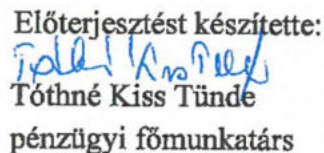 Előterjesztést készítette:
Tóthné Kiss Tünde
pénzügyi főmunkatárs